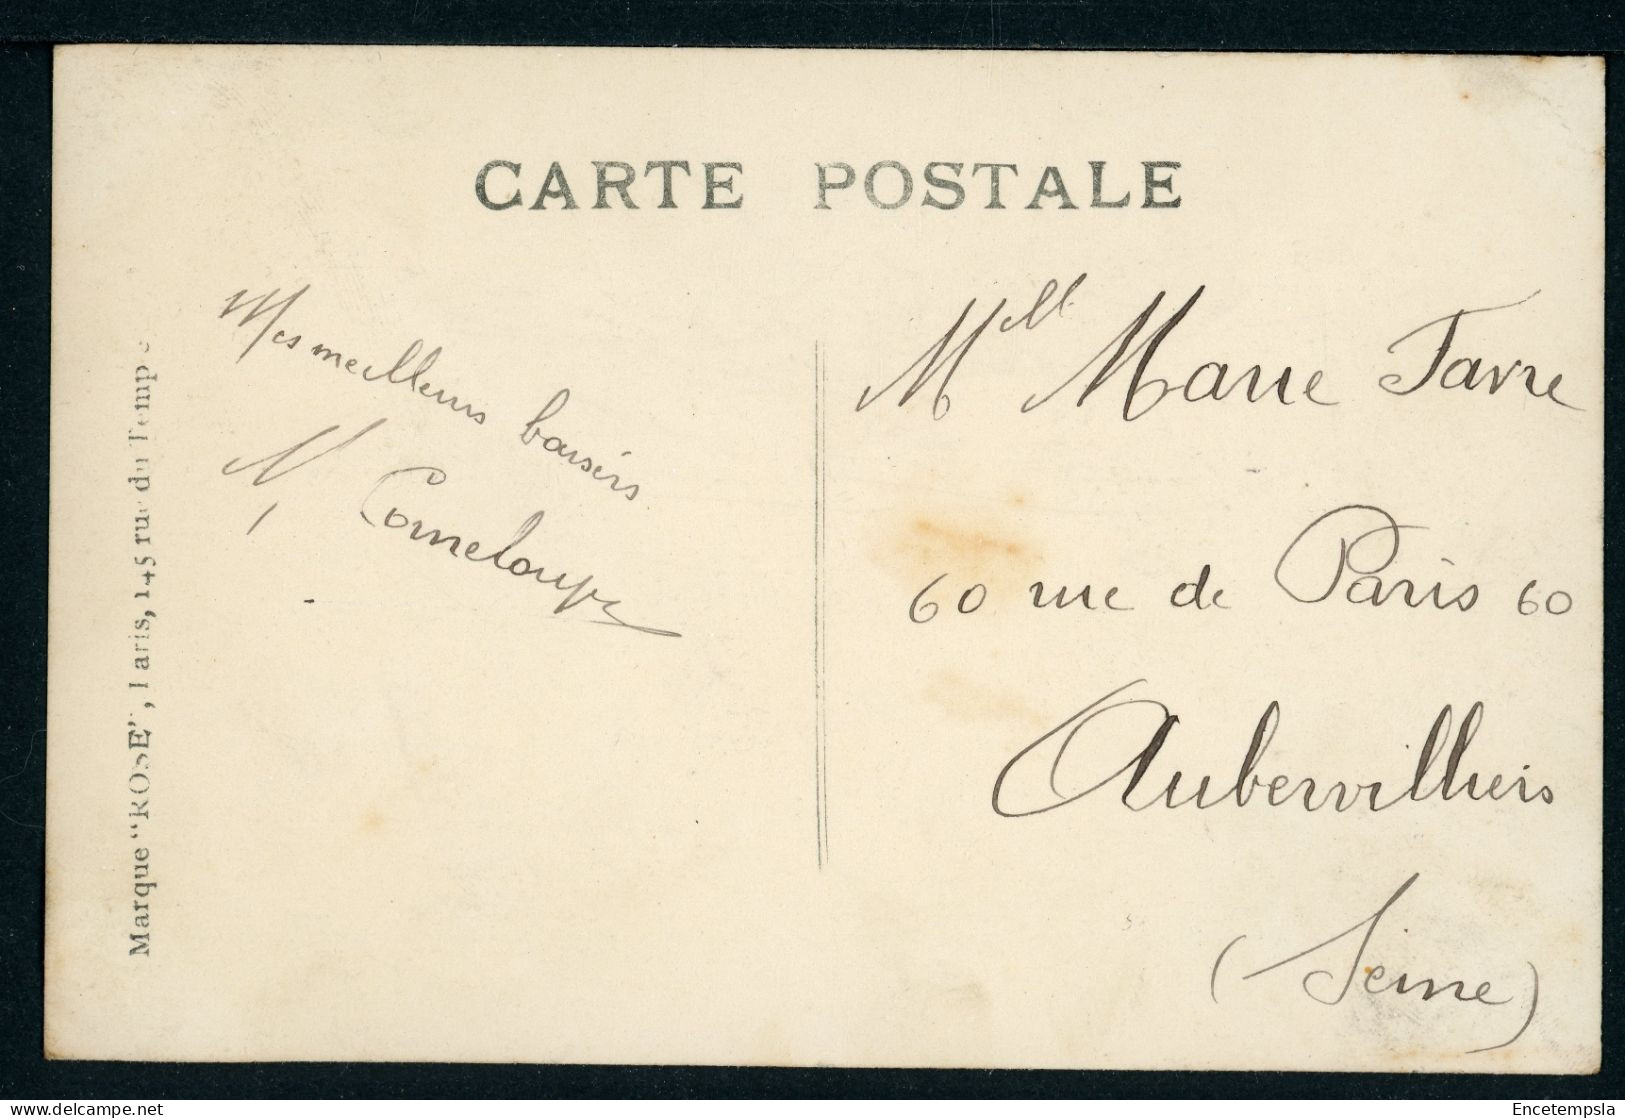 CARTE POSTALE
Marque "ROSE", Paris, 145 rue du Temple
Mes meilleurs baisers
Corneloup
Mlle Marie Favre
60 rue de Paris 60
Aubervilliers
(Seine)
delcampe.net
Encetempsla